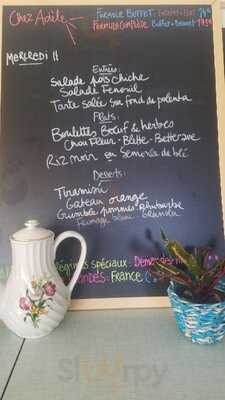 Chez Adèle
FORMULE BUFFET:
FORMULE COMPLÈTE Buffet + Dessert 17.50
MERCREDI 11
Entrées:
Salade pois chiche
Salade Fenouil
Tarte salée sur fond de polenta
Plats:
Boulettes Boeuf & herbes
Chou Fleur - Blette - Betterave
Riz noir ou Semoule de blé
Desserts:
Tiramisu
Gateau orange
Crumble pommes-Rhubarbe
Fromage blanc - Granola
Régimes spéciaux:
France